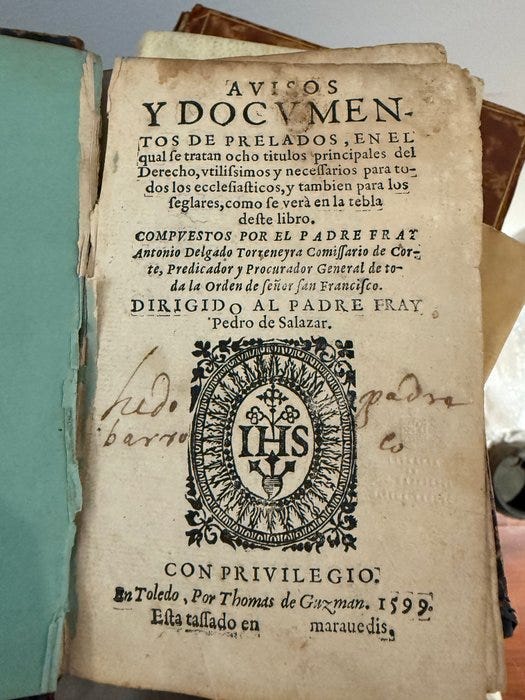 AVISOS
Y DOCVMEN-
TOS DE PRELADOS, EN EL
qual ſe tratan ocho titulos principales del
Derecho, vtiliſsimos y neceſſarios para to-
dos los eccleſiaſticos, y tambien para los
ſeglares, como ſe verà en la tebla
deſte libro.
COMPVESTOS POR EL PADRE FRAY
Antonio Delgado Torreneyra Comiſſario de Cor-
te, Predicador y Procurador General de to-
da la Orden de ſeñor ſan Franciſco.
DIRIGIDO AL PADRE FRAY
Pedro de Salazar.
hedo padre
barro co
IHS
CON PRIVILEGIO.
En Toledo, Por Thomas de Guzman. 1599.
Eſta taſſado en marauedis.